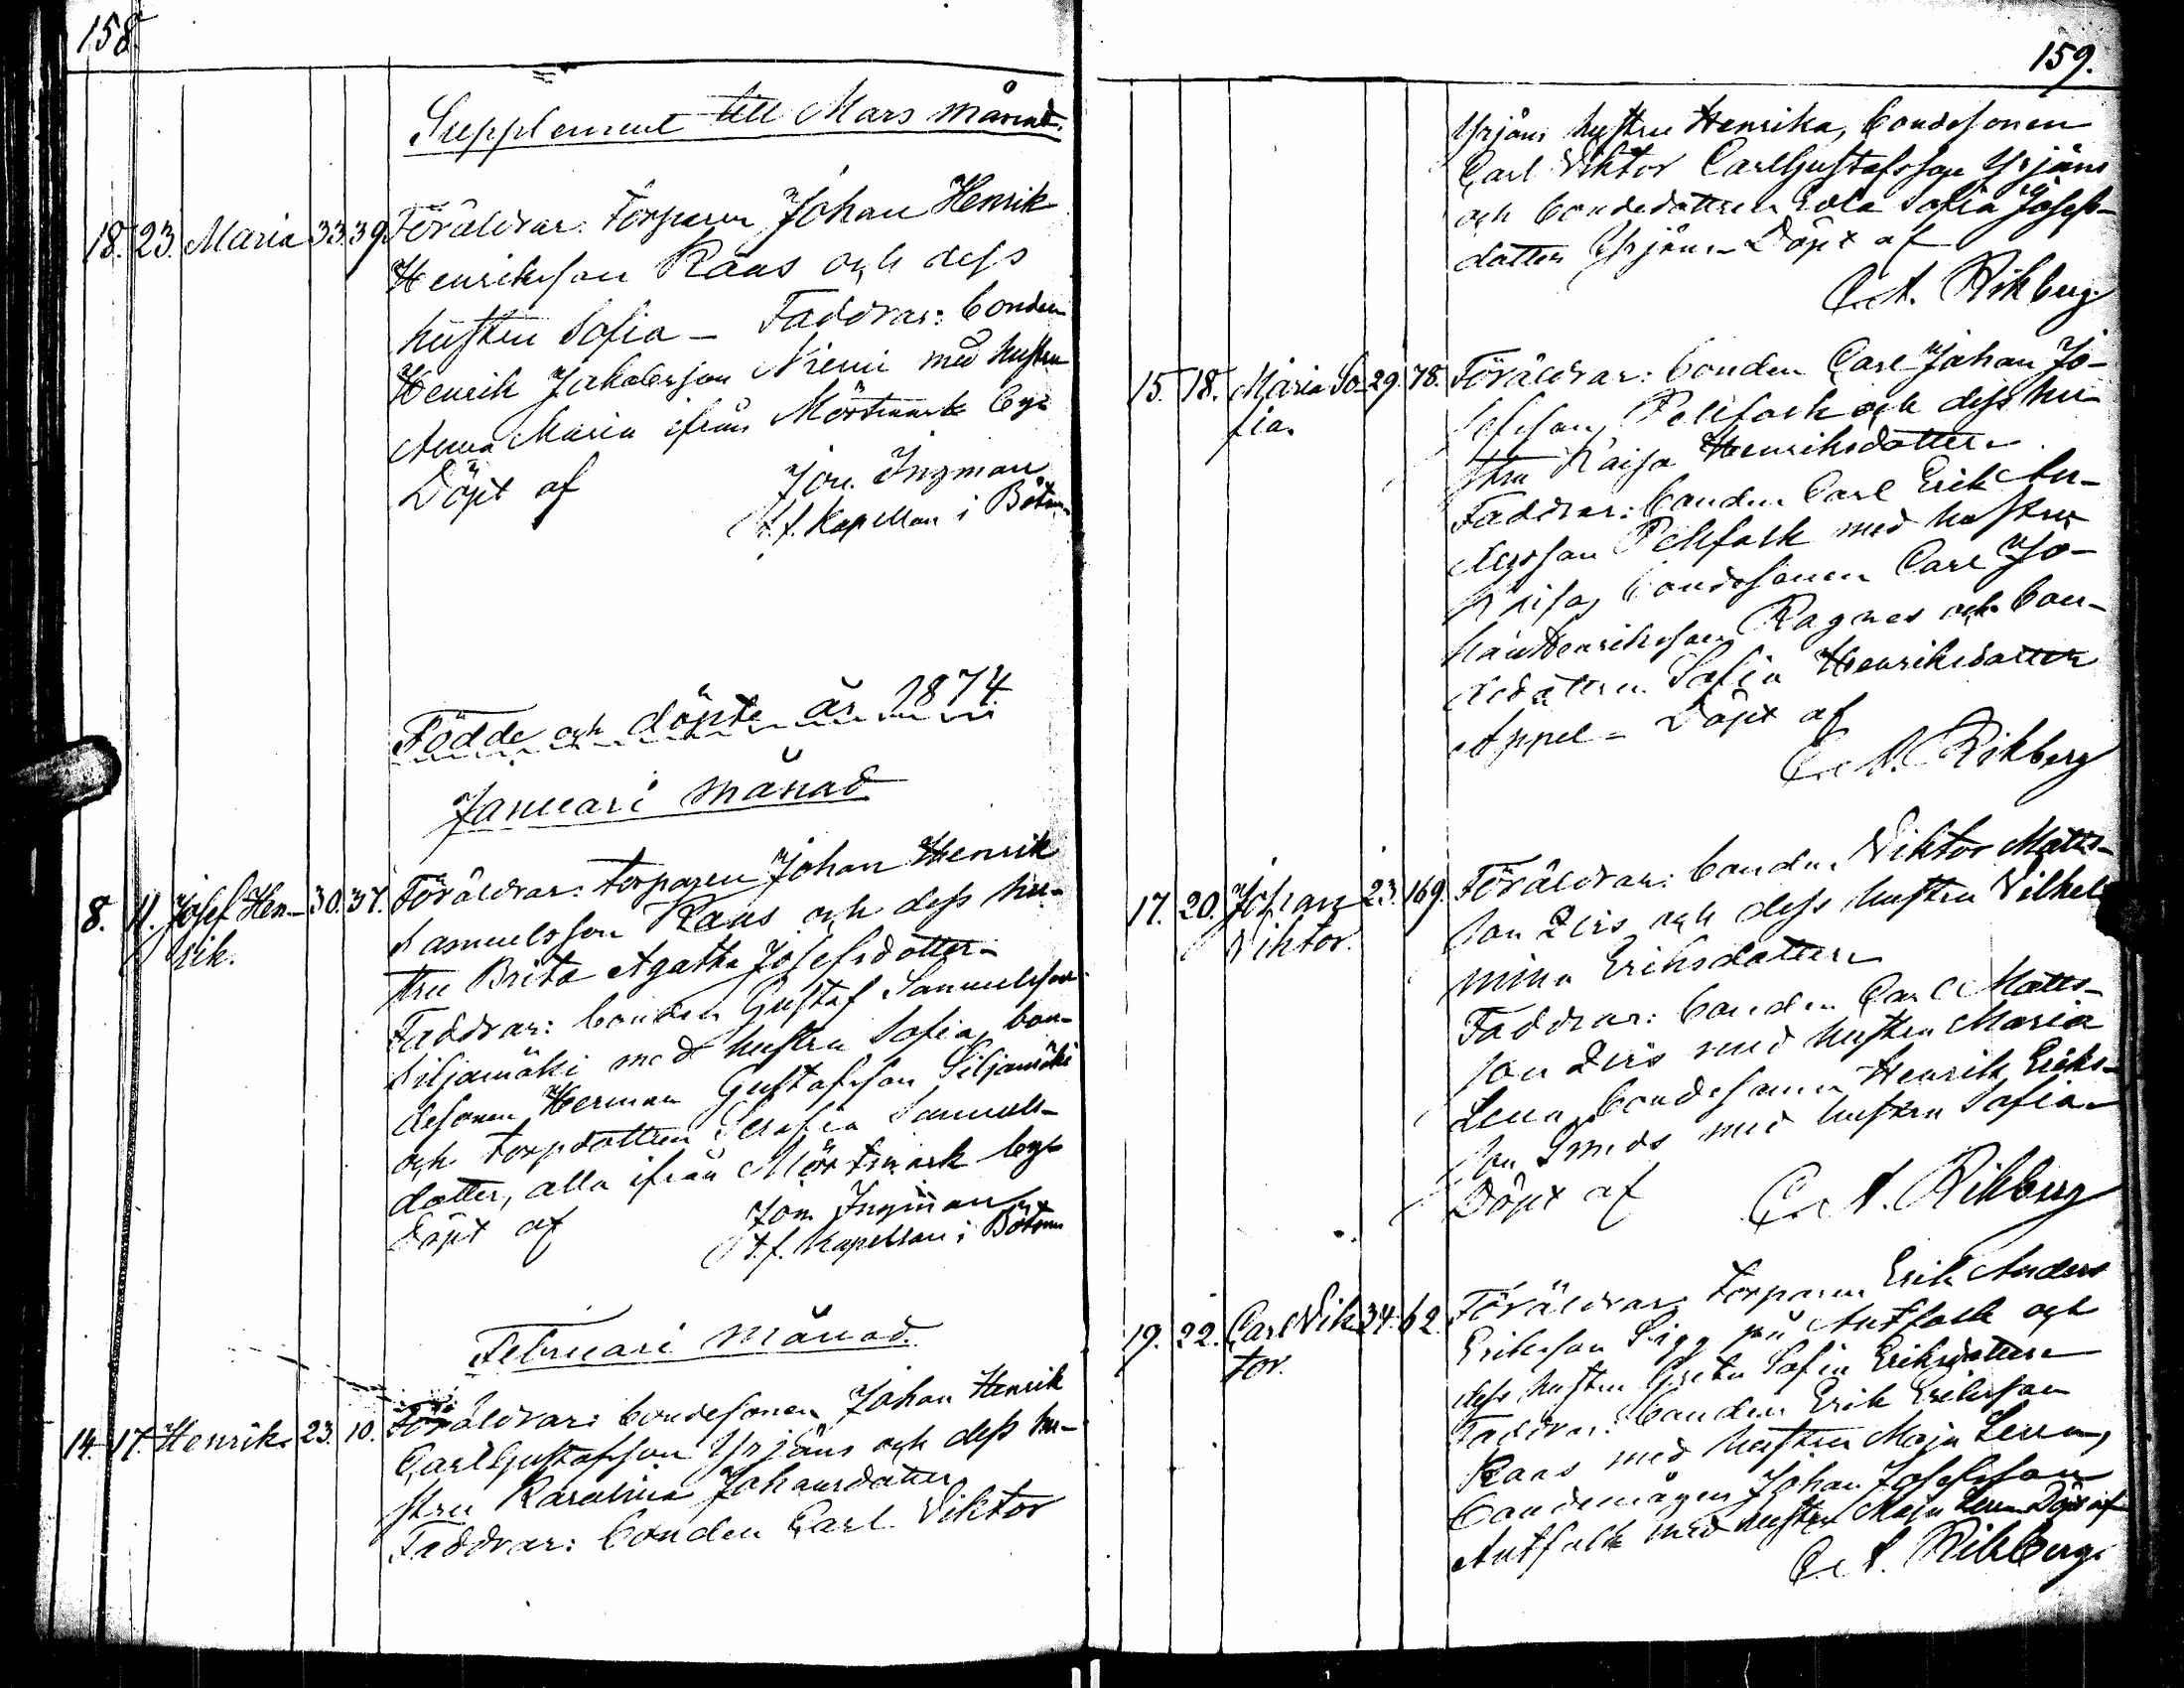 158.
Supplement till Mars månad.
18. 23. Maria 33. 39. Föräldrar: torparen Johan Henrik
Henriksson Raus och dess
hustru Sofia – Faddrar: bonden
Henrik Jakobsson Niemi med hustru
Anna Maria ifrån Mörtmark by.
Döpt af Joh. Ingman
t.f. Kapellan i Bötom
Födde och döpte år 1874
Januari månad
8. 11. Josef Hen- 30. 37. Föräldrar: torparen Johan Henrik
rik. Samuelsson Raus och dess hu-
stru Brita Agatha Josefsdotter.
Faddrar: bonden Gustaf Samuelsson
Siljamäki med hustru Sofia, bon-
desonen Herman Gustafsson Siljamäki
och torpdottren Serafia Samuels-
dotter, alla ifrån Mörtmark by.
Döpt af Joh. Ingman
t.f. Kapellan i Bötom
Februari månad.
14. 17. Henrik. 23. 10. Föräldrar: bondesonen Johan Henrik
Carl Gustafsson Yrjäns och dess hu-
stru Karolina Johansdotter
Faddrar: bonden Carl Viktor
159.
Yrjäns hustru Henrika, bondesonen
Carl Viktor Carl Gustafsson Yrjäns
och bondedottren Eva Sofia Josefs-
dotter Yrjäns. Döpt af
C. A. Rikberg
15. 18. Maria So- 29. 78. Föräldrar: bonden Carl Johan Jo-
fia. sefsson Pellfolk och dess hu-
stru Kaisa Henriksdotter.
Faddrar: bonden Carl Erik An-
dersson Pellfolk med hustru
Kaisa, bondesonen Carl Jo-
han Henriksson Ragnes och bon-
dedottren Sofia Henriksdotter
Appel – Döpt af
C. A. Rikberg
17. 20. Johan 23. 169. Föräldrar: bonden Viktor Matts-
Viktor. son och dess hustru Vilhel
mina Eriksdotter
Faddrar: bonden Carl Matts-
son med hustru Maria
Lena, bondesonen Henrik Eriks-
son Smeds med hustru Sofia.
Döpt af C. A. Rikberg
19. 22. Carl Vik 34. 62. Föräldrar: torparen Erik Anders
tor. Eriksson Sigg på Antfolk och
dess hustru Greta Sofia Eriksdotter
Faddrar: bonden Erik Eriksson
Raus med hustru Maja Lena,
bondemågen Johan Josefsson
Antfolk med hustru Maja Lena Döpt af
C. A. Rikberg.